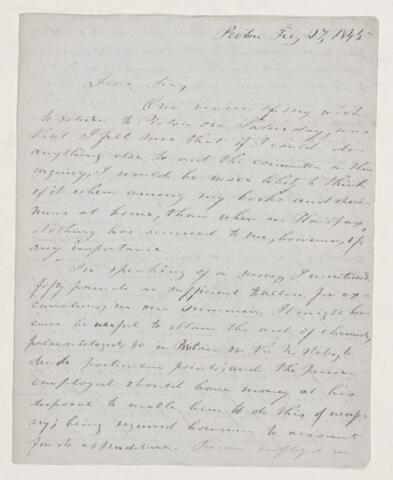 Pictou Feby 27, 1845
Dear Sir,
One reason of my wish
to return to Pictou on Saturday, was
that I felt sure that if I could do
anything else to aid the committee in their
inquiry, I would be more likely to think
of it when among my books and speci-
mens at home, than when in Halifax,
Nothing has occurred to me, however, of
any importance.
In speaking of a survey, I mentioned
fifty pounds as sufficient to allow for ex-
cavations, in one summer. It might how-
ever be useful to obtain the aid of chemists,
palaeontologists, &c in Britain or the U. States, to
pertinent points; and the person
employed should have money at his
disposal to enable him to do this if neces-
sary; being required however to account
for its expenditure. Persons employed in